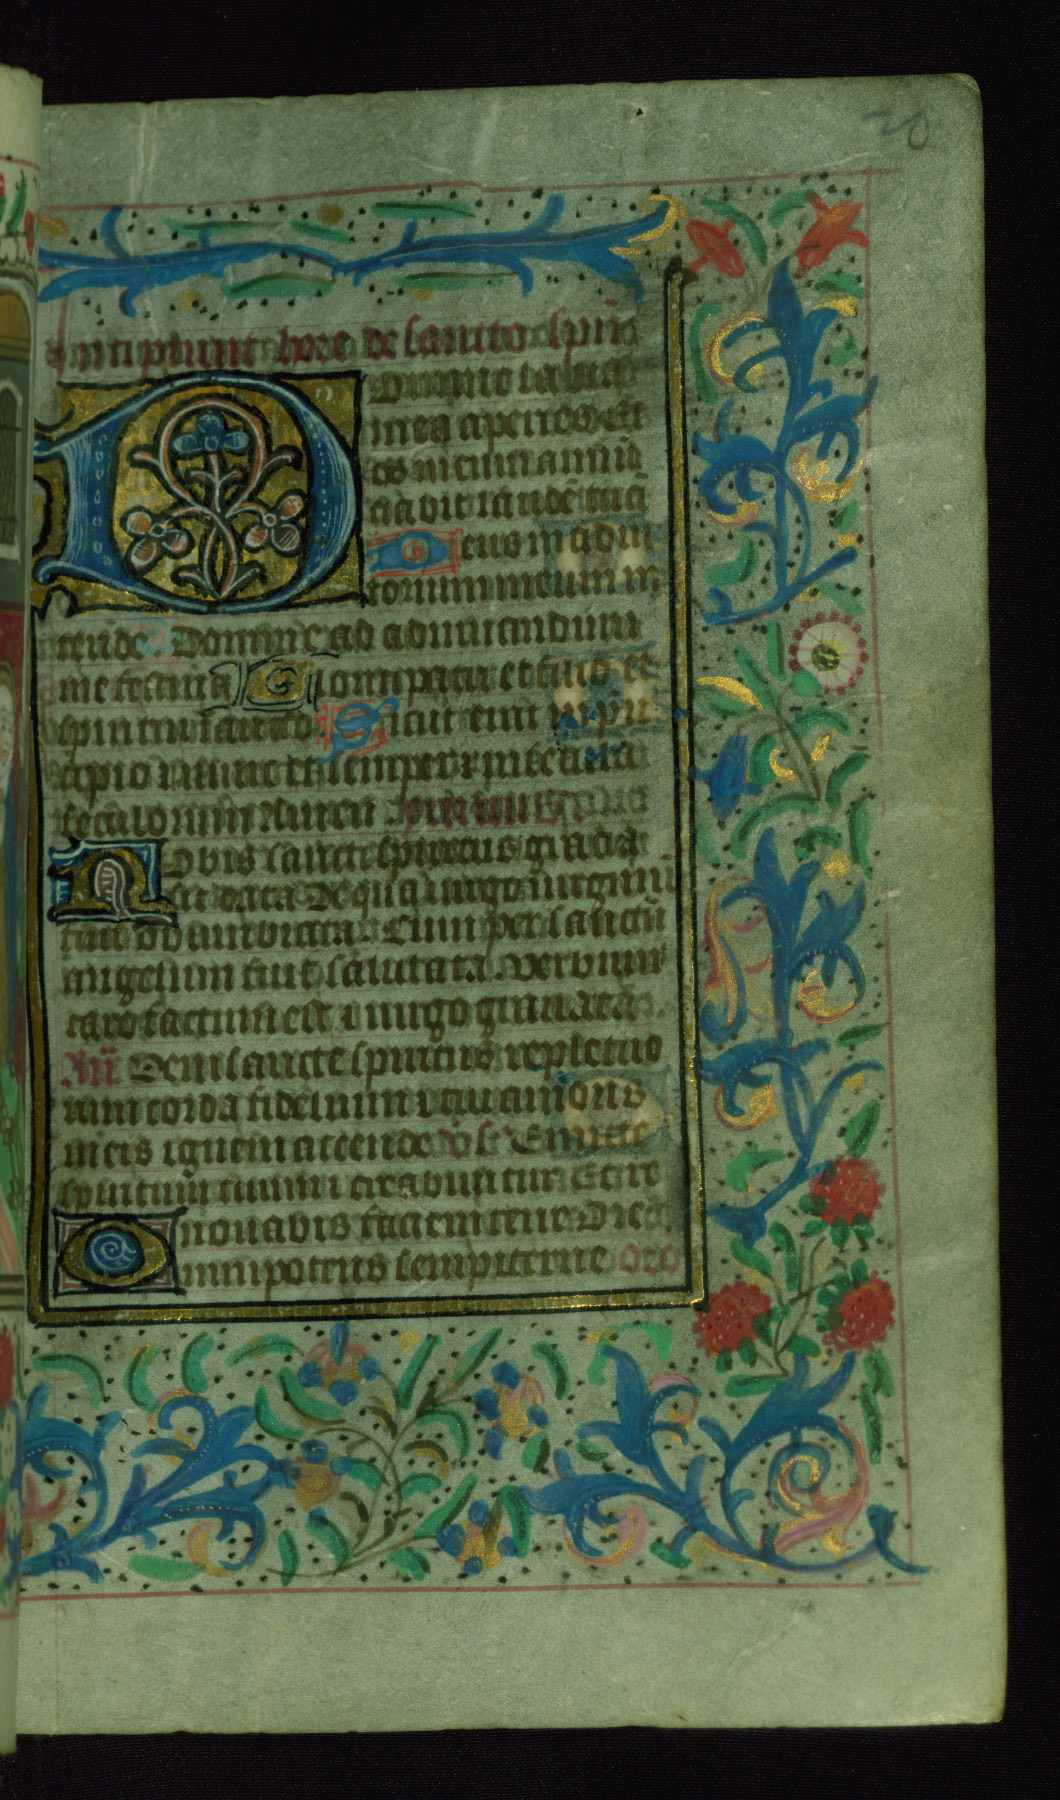 20
Incipiunt hore de sancto spũ
Domine labia
mea aperies Et
os meum annũ
ciabit laudẽ tuã
Deus in adiu
torium meum in
tende Domine ad adiuuandum
me festina Gloria patri et filio et
spiritui sancto Sicut erat in prĩ
cipio et nunc et semper et in secula
seculorum Amen
Nobis sancti spiritus gracia
sit data De qua uirgo uirginũ
fuit obumbrata Cum per sanctũ
angelum fuit salutata Verbum
caro factum est uirgo
Añ Veni sancte spiritus reple tuo
rum corda fidelium et tui amoris
in eis ignem accende vs̃ Emitte
spiritum tuum et creabuntur Et re
nouabis faciem terre
Omnipotens sempiterne oro